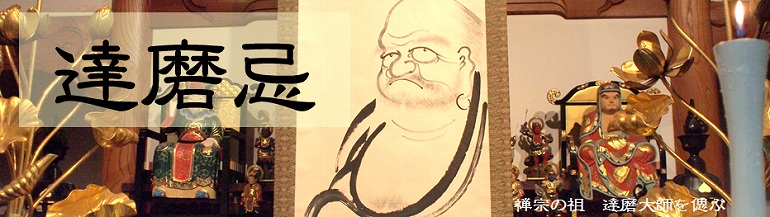 達磨忌
禅宗の祖　達磨大師を偲ぶ